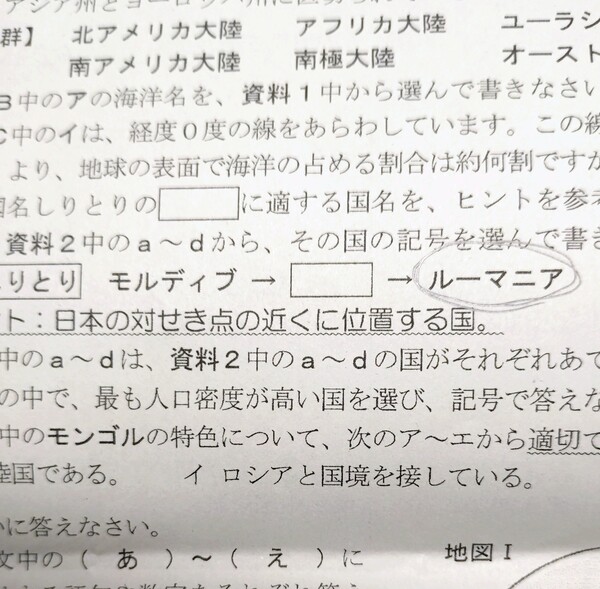 アジア州とヨーロッパ州に
群】 北アメリカ大陸 アフリカ大陸 ユーラシ
南アメリカ大陸 南極大陸 オースト
B中のアの海洋名を、資料1中から選んで書きなさい
C中のイは、経度0度の線をあらわしています。この線
より、地球の表面で海洋の占める割合は約何割ですか
国名しりとりの に適する国名を、ヒントを参考
資料2中のa～dから、その国の記号を選んで書き
しりとり モルディブ → → ルーマニア
ント：日本の対せき点の近くに位置する国。
中のa～dは、資料2中のa～dの国がそれぞれあて
の中で、最も人口密度が高い国を選び、記号で答えな
中のモンゴルの特色について、次のア～エから適切で
陸国である。 イ ロシアと国境を接している。
いに答えなさい。
文中の（ あ ）～（ え ）に
地図Ⅰ